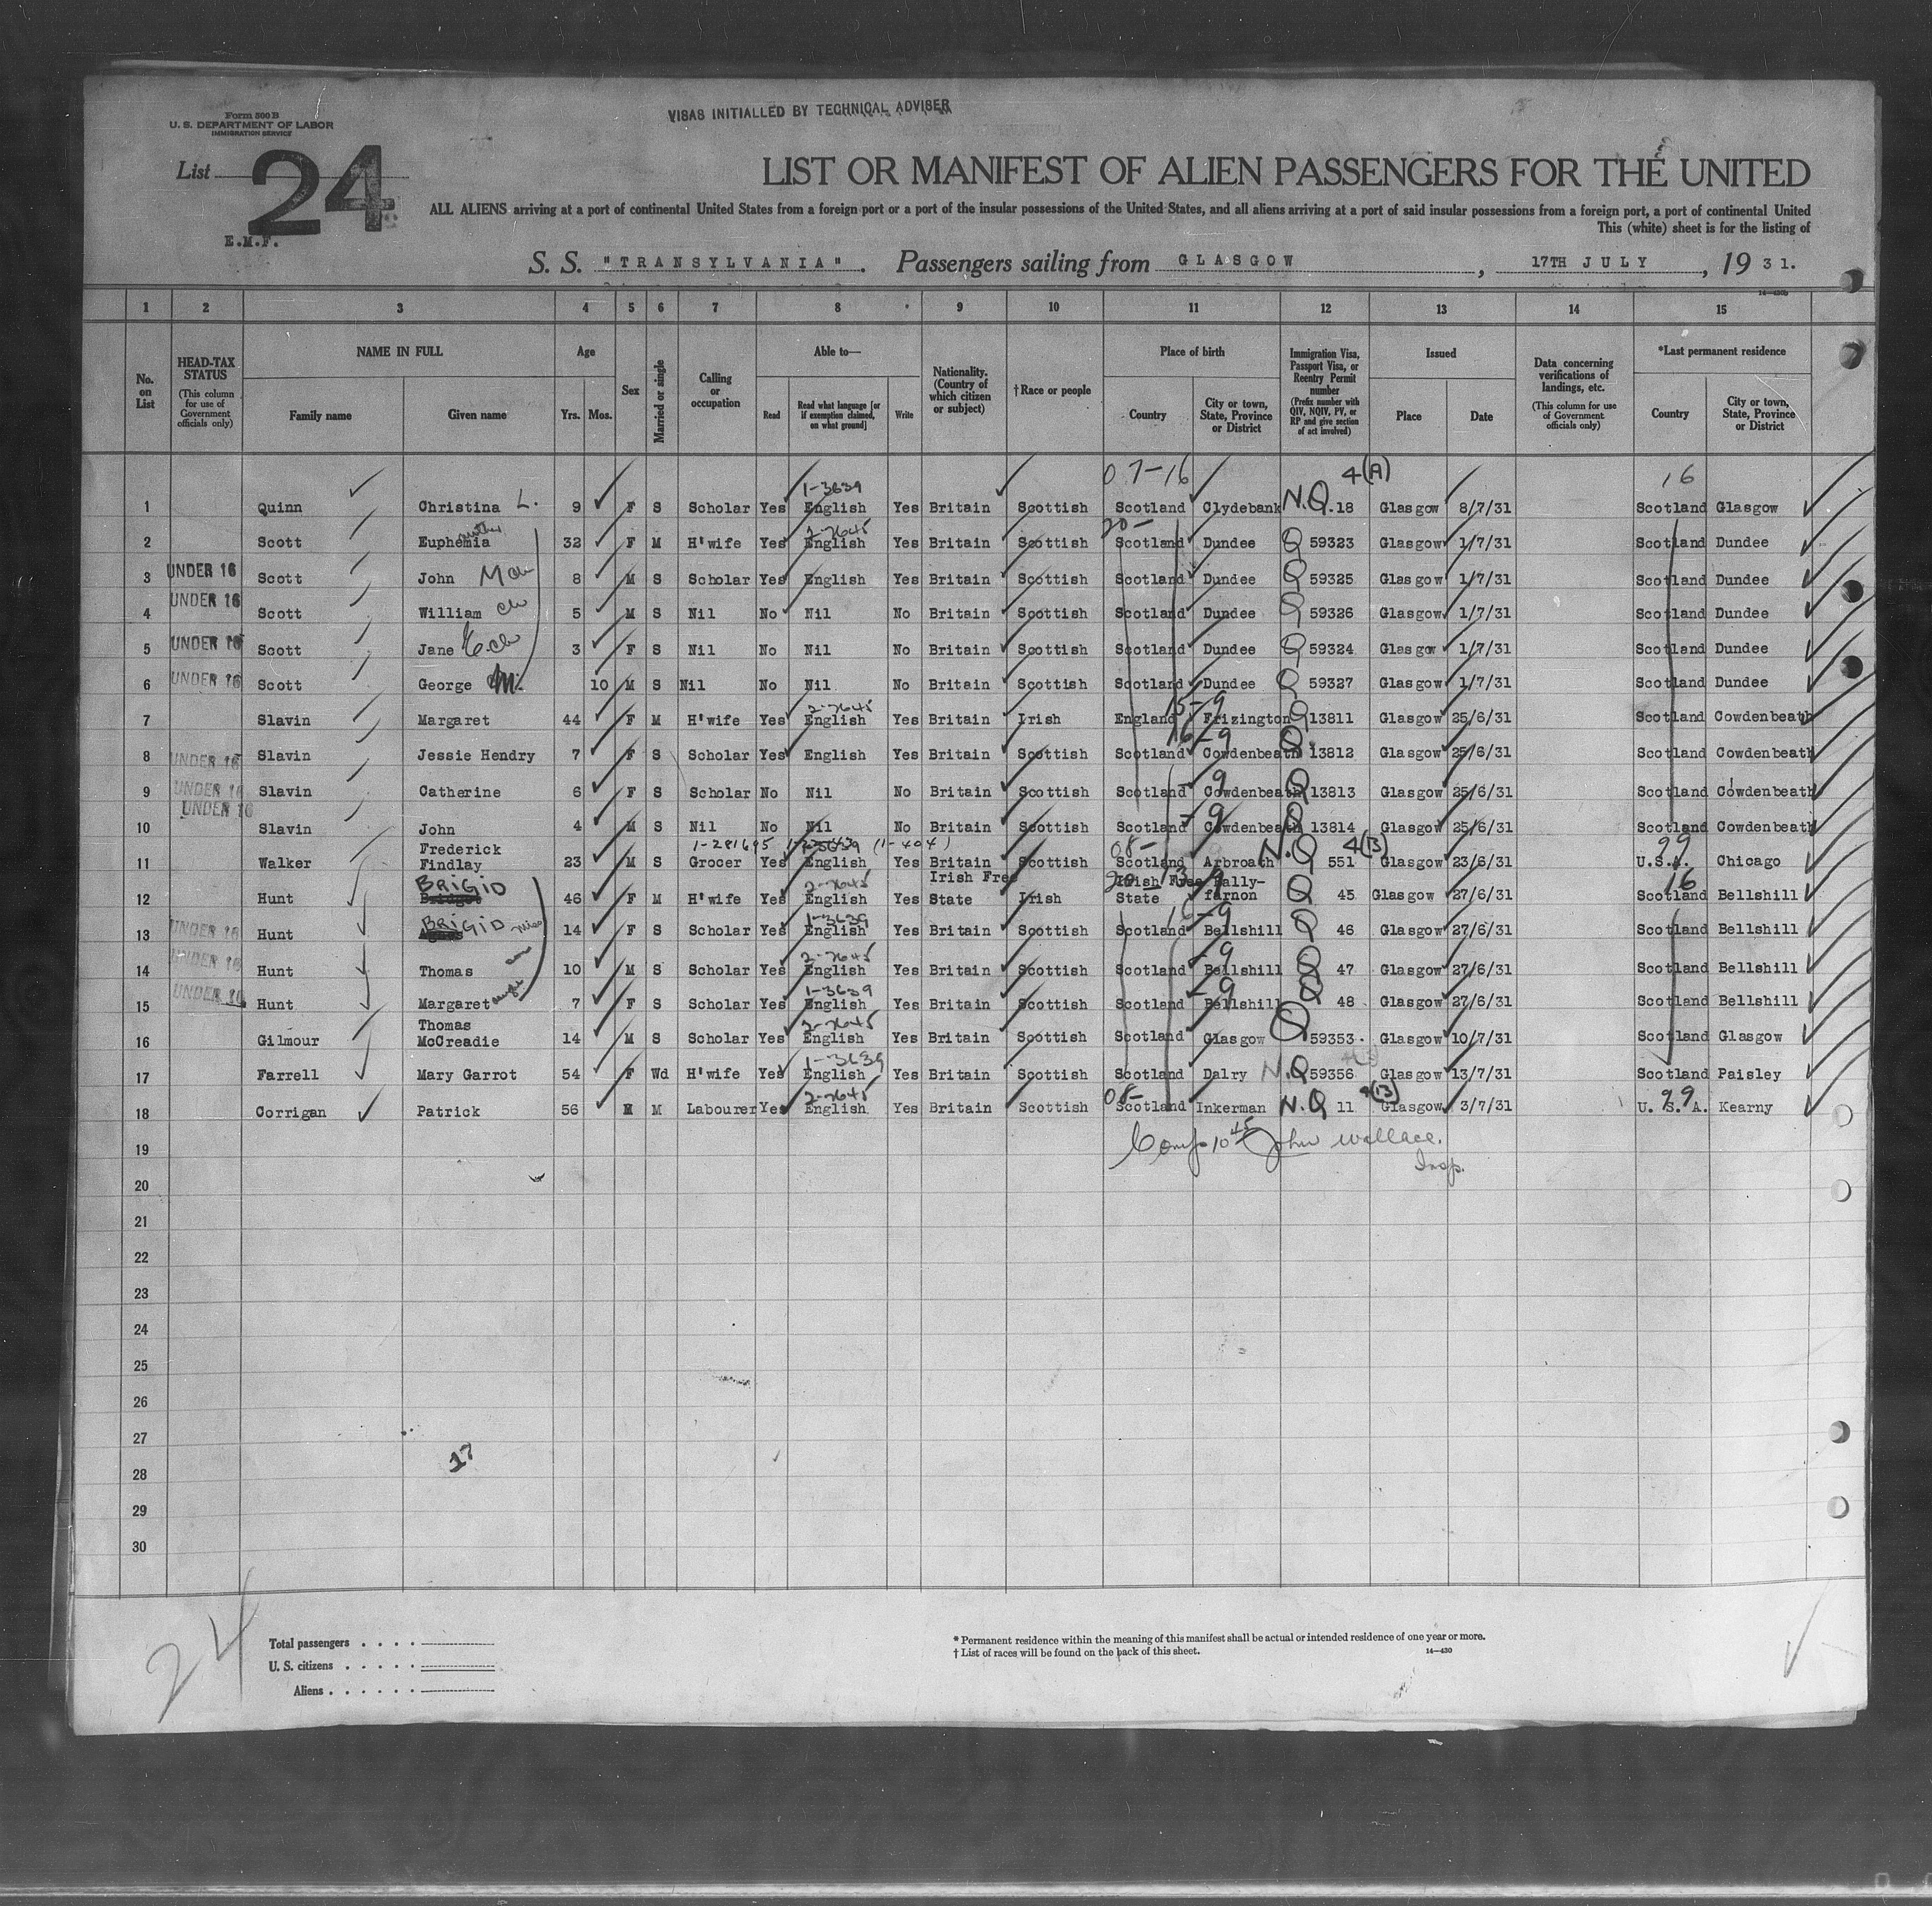 Form 500 B
U. S. DEPARTMENT OF LABOR
IMMIGRATION SERVICE
VISAS INITIALLED BY TECHNICAL ADVISER
List 24
E.M.F.
LIST OR MANIFEST OF ALIEN PASSENGERS FOR THE UNITED
ALL ALIENS arriving at a port of continental United States from a foreign port or a port of the insular possessions of the United States, and all aliens arriving at a port of said insular possessions from a foreign port, a port of continental United
This (white) sheet is for the listing of
S. S. "TRANSYLVANIA". Passengers sailing from GLASGOW, 17TH JULY, 1931.
1 2 3 4 5 6 7 8 9 10 11 12 13 14 15
No. on List
HEAD-TAX STATUS (This column for use of Government officials only)
NAME IN FULL Family name Given name
Age Yrs. Mos.
Sex
Married or single
Calling or occupation
Able to— Read Read what language [or if exemption claimed, on what ground] Write
Nationality. (Country of which citizen or subject)
†Race or people
Place of birth Country City or town, State, Province or District
Immigration Visa, Passport Visa, or Reentry Permit number (Prefix number with QIV, NQIV, PV, or RP and give section of act involved)
Issued Place Date
Data concerning verifications of landings, etc. (This column for use of Government officials only)
*Last permanent residence Country City or town, State, Province or District
07-16 4(A) 16
1-3639
1 Quinn Christina L. 9 F S Scholar Yes English Yes Britain Scottish Scotland Clydebank N.Q.18 Glasgow 8/7/31 Scotland Glasgow
mother 2-7645 20-
2 Scott Euphemia 32 F M H'wife Yes English Yes Britain Scottish Scotland Dundee Q 59323 Glasgow 1/7/31 Scotland Dundee
3 UNDER 16 Scott John 8 M S Scholar Yes English Yes Britain Scottish Scotland Dundee Q 59325 Glasgow 1/7/31 Scotland Dundee
4 UNDER 16 Scott William 5 M S Nil No Nil No Britain Scottish Scotland Dundee Q 59326 Glasgow 1/7/31 Scotland Dundee
5 UNDER 16 Scott Jane 3 F S Nil No Nil No Britain Scottish Scotland Dundee Q 59324 Glasgow 1/7/31 Scotland Dundee
6 UNDER 16 Scott George 10 M S Nil No Nil No Britain Scottish Scotland Dundee Q 59327 Glasgow 1/7/31 Scotland Dundee
2-7645 15-9
7 Slavin Margaret 44 F M H'wife Yes English Yes Britain Irish England Frizington Q 13811 Glasgow 25/6/31 Scotland Cowdenbeath
16-9
8 UNDER 16 Slavin Jessie Hendry 7 F S Scholar Yes English Yes Britain Scottish Scotland Cowdenbeath Q 13812 Glasgow 25/6/31 Scotland Cowdenbeath
-9
9 UNDER 16 Slavin Catherine 6 F S Scholar No Nil No Britain Scottish Scotland Cowdenbeath Q 13813 Glasgow 25/6/31 Scotland Cowdenbeath
-9
10 UNDER 16 Slavin John 4 M S Nil No Nil No Britain Scottish Scotland Cowdenbeath Q 13814 Glasgow 25/6/31 Scotland Cowdenbeath
1-281695 (1-404) 08- 4(13) 99
11 Walker Frederick Findlay 23 M S Grocer Yes English Yes Britain Scottish Scotland Arbroath N.Q 551 Glasgow 23/6/31 U.S.A. Chicago
2-7645 16
12 Hunt BRIGID 46 F M H'wife Yes English Yes Irish Free State Irish Irish Free State Bally-farnon Q 45 Glasgow 27/6/31 Scotland Bellshill
1-3639 16-9
13 UNDER 16 Hunt BRIGID 14 F S Scholar Yes English Yes Britain Scottish Scotland Bellshill Q 46 Glasgow 27/6/31 Scotland Bellshill
2-7645 -9
14 UNDER 16 Hunt Thomas 10 M S Scholar Yes English Yes Britain Scottish Scotland Bellshill Q 47 Glasgow 27/6/31 Scotland Bellshill
1-3639 -9
15 UNDER 16 Hunt Margaret 7 F S Scholar Yes English Yes Britain Scottish Scotland Bellshill Q 48 Glasgow 27/6/31 Scotland Bellshill
2-7645
16 Gilmour Thomas McCreadie 14 M S Scholar Yes English Yes Britain Scottish Scotland Glasgow Q 59353. Glasgow 10/7/31 Scotland Glasgow
1-3639
17 Farrell Mary Garrot 54 F Wd H'wife Yes English Yes Britain Scottish Scotland Dalry N.Q 59356 Glasgow 13/7/31 Scotland Paisley
2-7645 08- 4(13) 99
18 Corrigan Patrick 56 M M Labourer Yes English Yes Britain Scottish Scotland Inkerman N.Q 11 Glasgow 3/7/31 U. S. A. Kearny
19 Comp 10 45 John Wallace.
Insp.
20
21
22
23
24
25
26
27
17
28
29
30
24
Total passengers
U. S. citizens
Aliens
* Permanent residence within the meaning of this manifest shall be actual or intended residence of one year or more.
† List of races will be found on the back of this sheet.
14—430